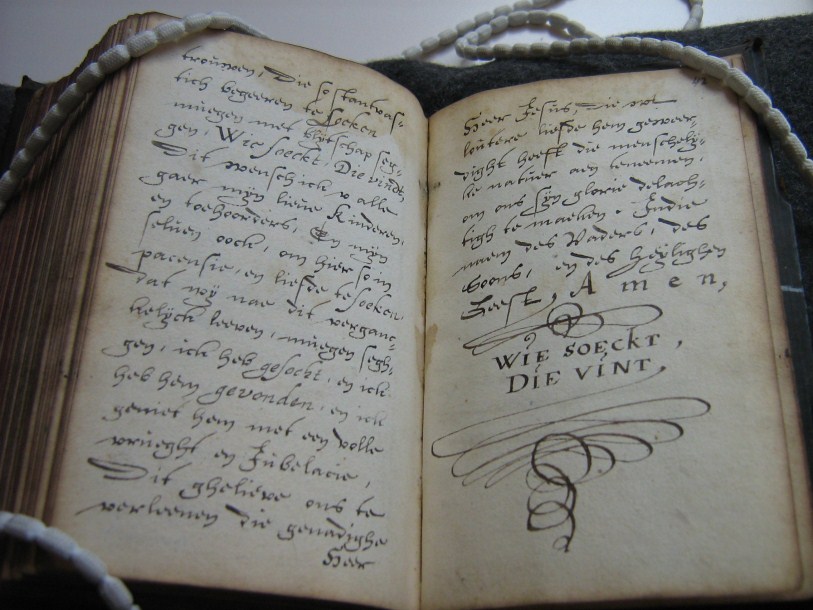 trouwen, Die so stantvas-
tich begeeren te soeken
muegen met blytschap seg-
gen, Wie soeckt. Die vindt
Dit wensch ick v alle
gaer myn lieue kinderen,
en toehoorders, En myn
seluen oock, om hier so in
pacensie, en liefde te soeken,
Dat wy nae dit verganc-
kelyck leeven, muegen segh-
gen, ick heb gesocht, en ick
heb hem gevonden, en ick
geniet hem met een volle
vrueght en Jubelacie,
Dit ghelieve ons te
verleenen die genadighe
Heer
Heer Jesus, Die wt
loutere liefde hem geweer-
dight heeft die menschely-
ke natuer aen teneemen,
om ons syn glorie delach-
tigh te maeken. Indie
naem des Vaders, des
Soons, en des heylighen
Geest, Amen,
WIE SOECKT,
DIE VINT,